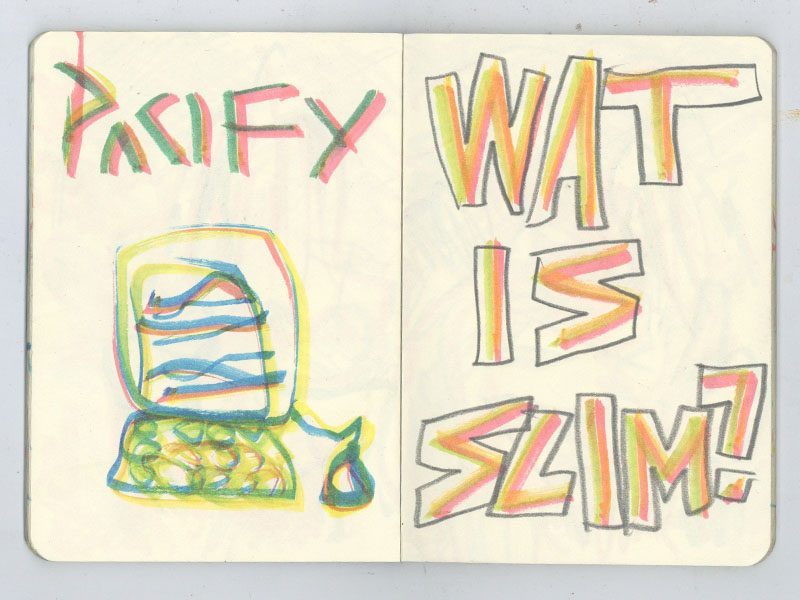 PACIFY
WAT
IS
SLIM?